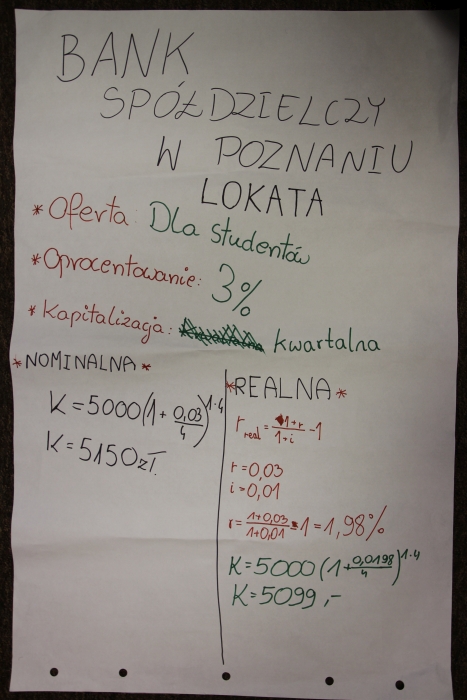 BANK
SPÓŁDZIELCZY
W POZNANIU
LOKATA
* Oferta: Dla studentów
* Oprocentowanie: 3%
* Kapitalizacja: kwartalna
* NOMINALNA *
K = 5000(1 + 0,03/4)^1·4
K = 5150 zł.
* REALNA *
r real = 1+r/1+i - 1
r = 0,03
i = 0,01
r = 1+0,03/1+0,01 - 1 = 1,98%
K = 5000 (1 + 0,0198/4)^1·4
K = 5099 ,-